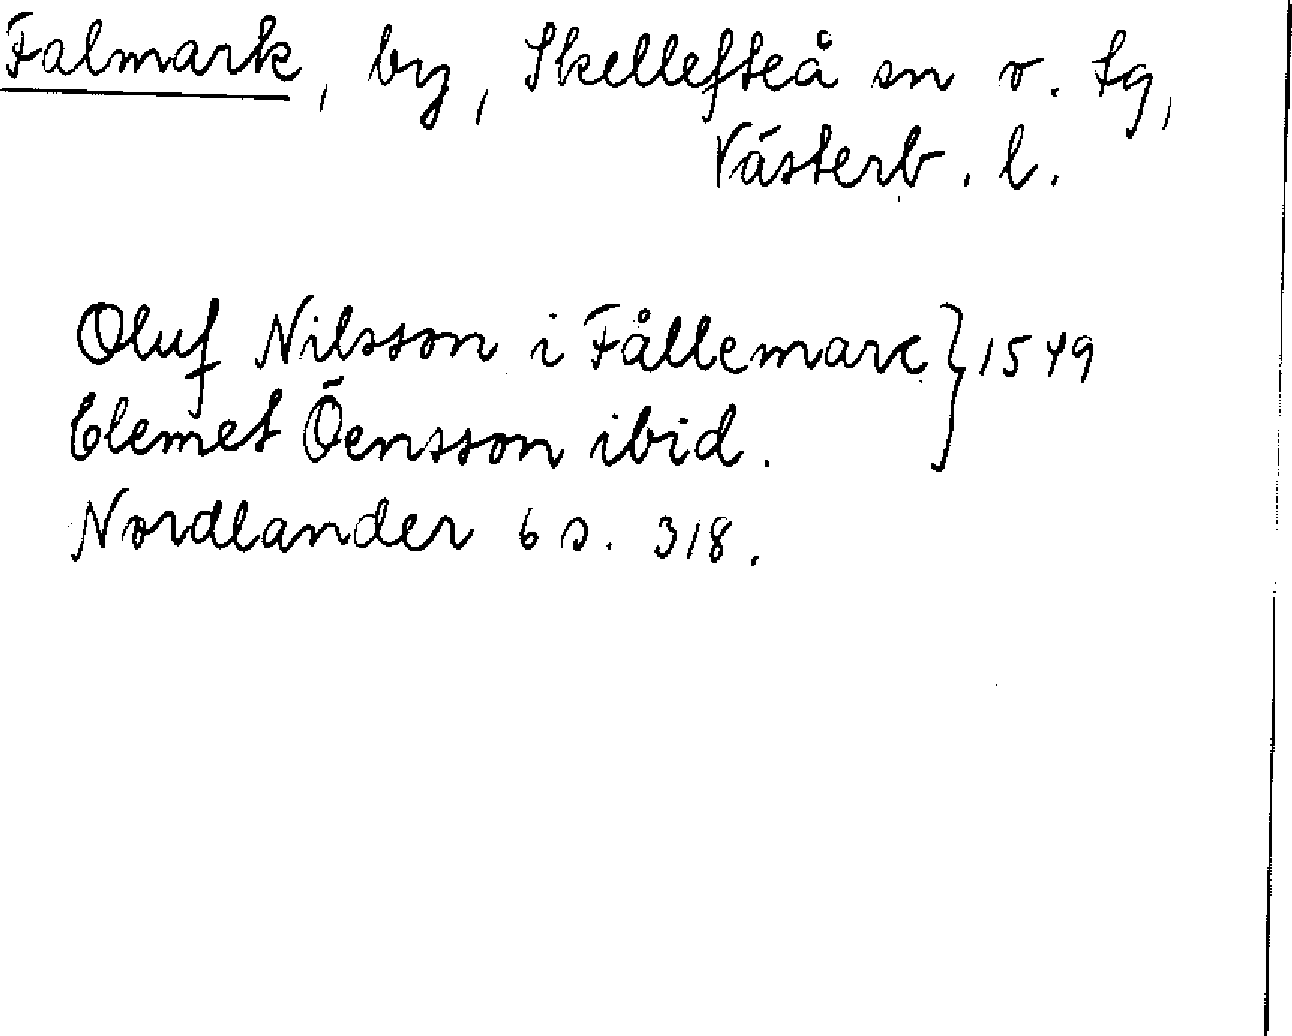 Falmark, by, Skellefteå sn o. tg,
Västerb. l.
Oluf Nilsson i Fållemarc } 1549
Clemet Öensson ibid.
Nordlander 6 s. 318.